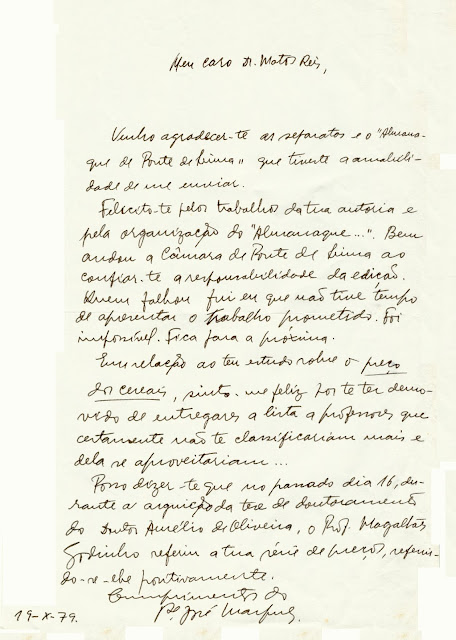 Meu caro Dr. Matos Reis,
Venho agradecer-te as separatas e o "Almana-
que de Ponte de Lima" que tiveste a amabili-
dade de me enviar.
Felicito-te pelos trabalhos da tua autoria e
pela organização do "Almanaque...". Bem
andou a Câmara de Ponte de Lima ao
confiar-te a responsabilidade da edição.
Quem falhou fui eu que não tive tempo
de apresentar o trabalho prometido. Foi
impossível. Fica para a próxima.
Em relação ao teu estudo sobre o preço
dos cereais, sinto-me feliz por te ter demo-
vido de entregares a lista a professores que
certamente não te classificariam mais e
dela se aproveitariam...
Posso dizer-te que no passado dia 16, du-
rante a arguição da tese de doutoramento
do Doutor Aurélio de Oliveira, o Prof. Magalhães
Godinho referiu a tua série de preços, referin-
do-se-lhe positivamente.
Cumprimentos do
Pe. José Marques
19-X-79.